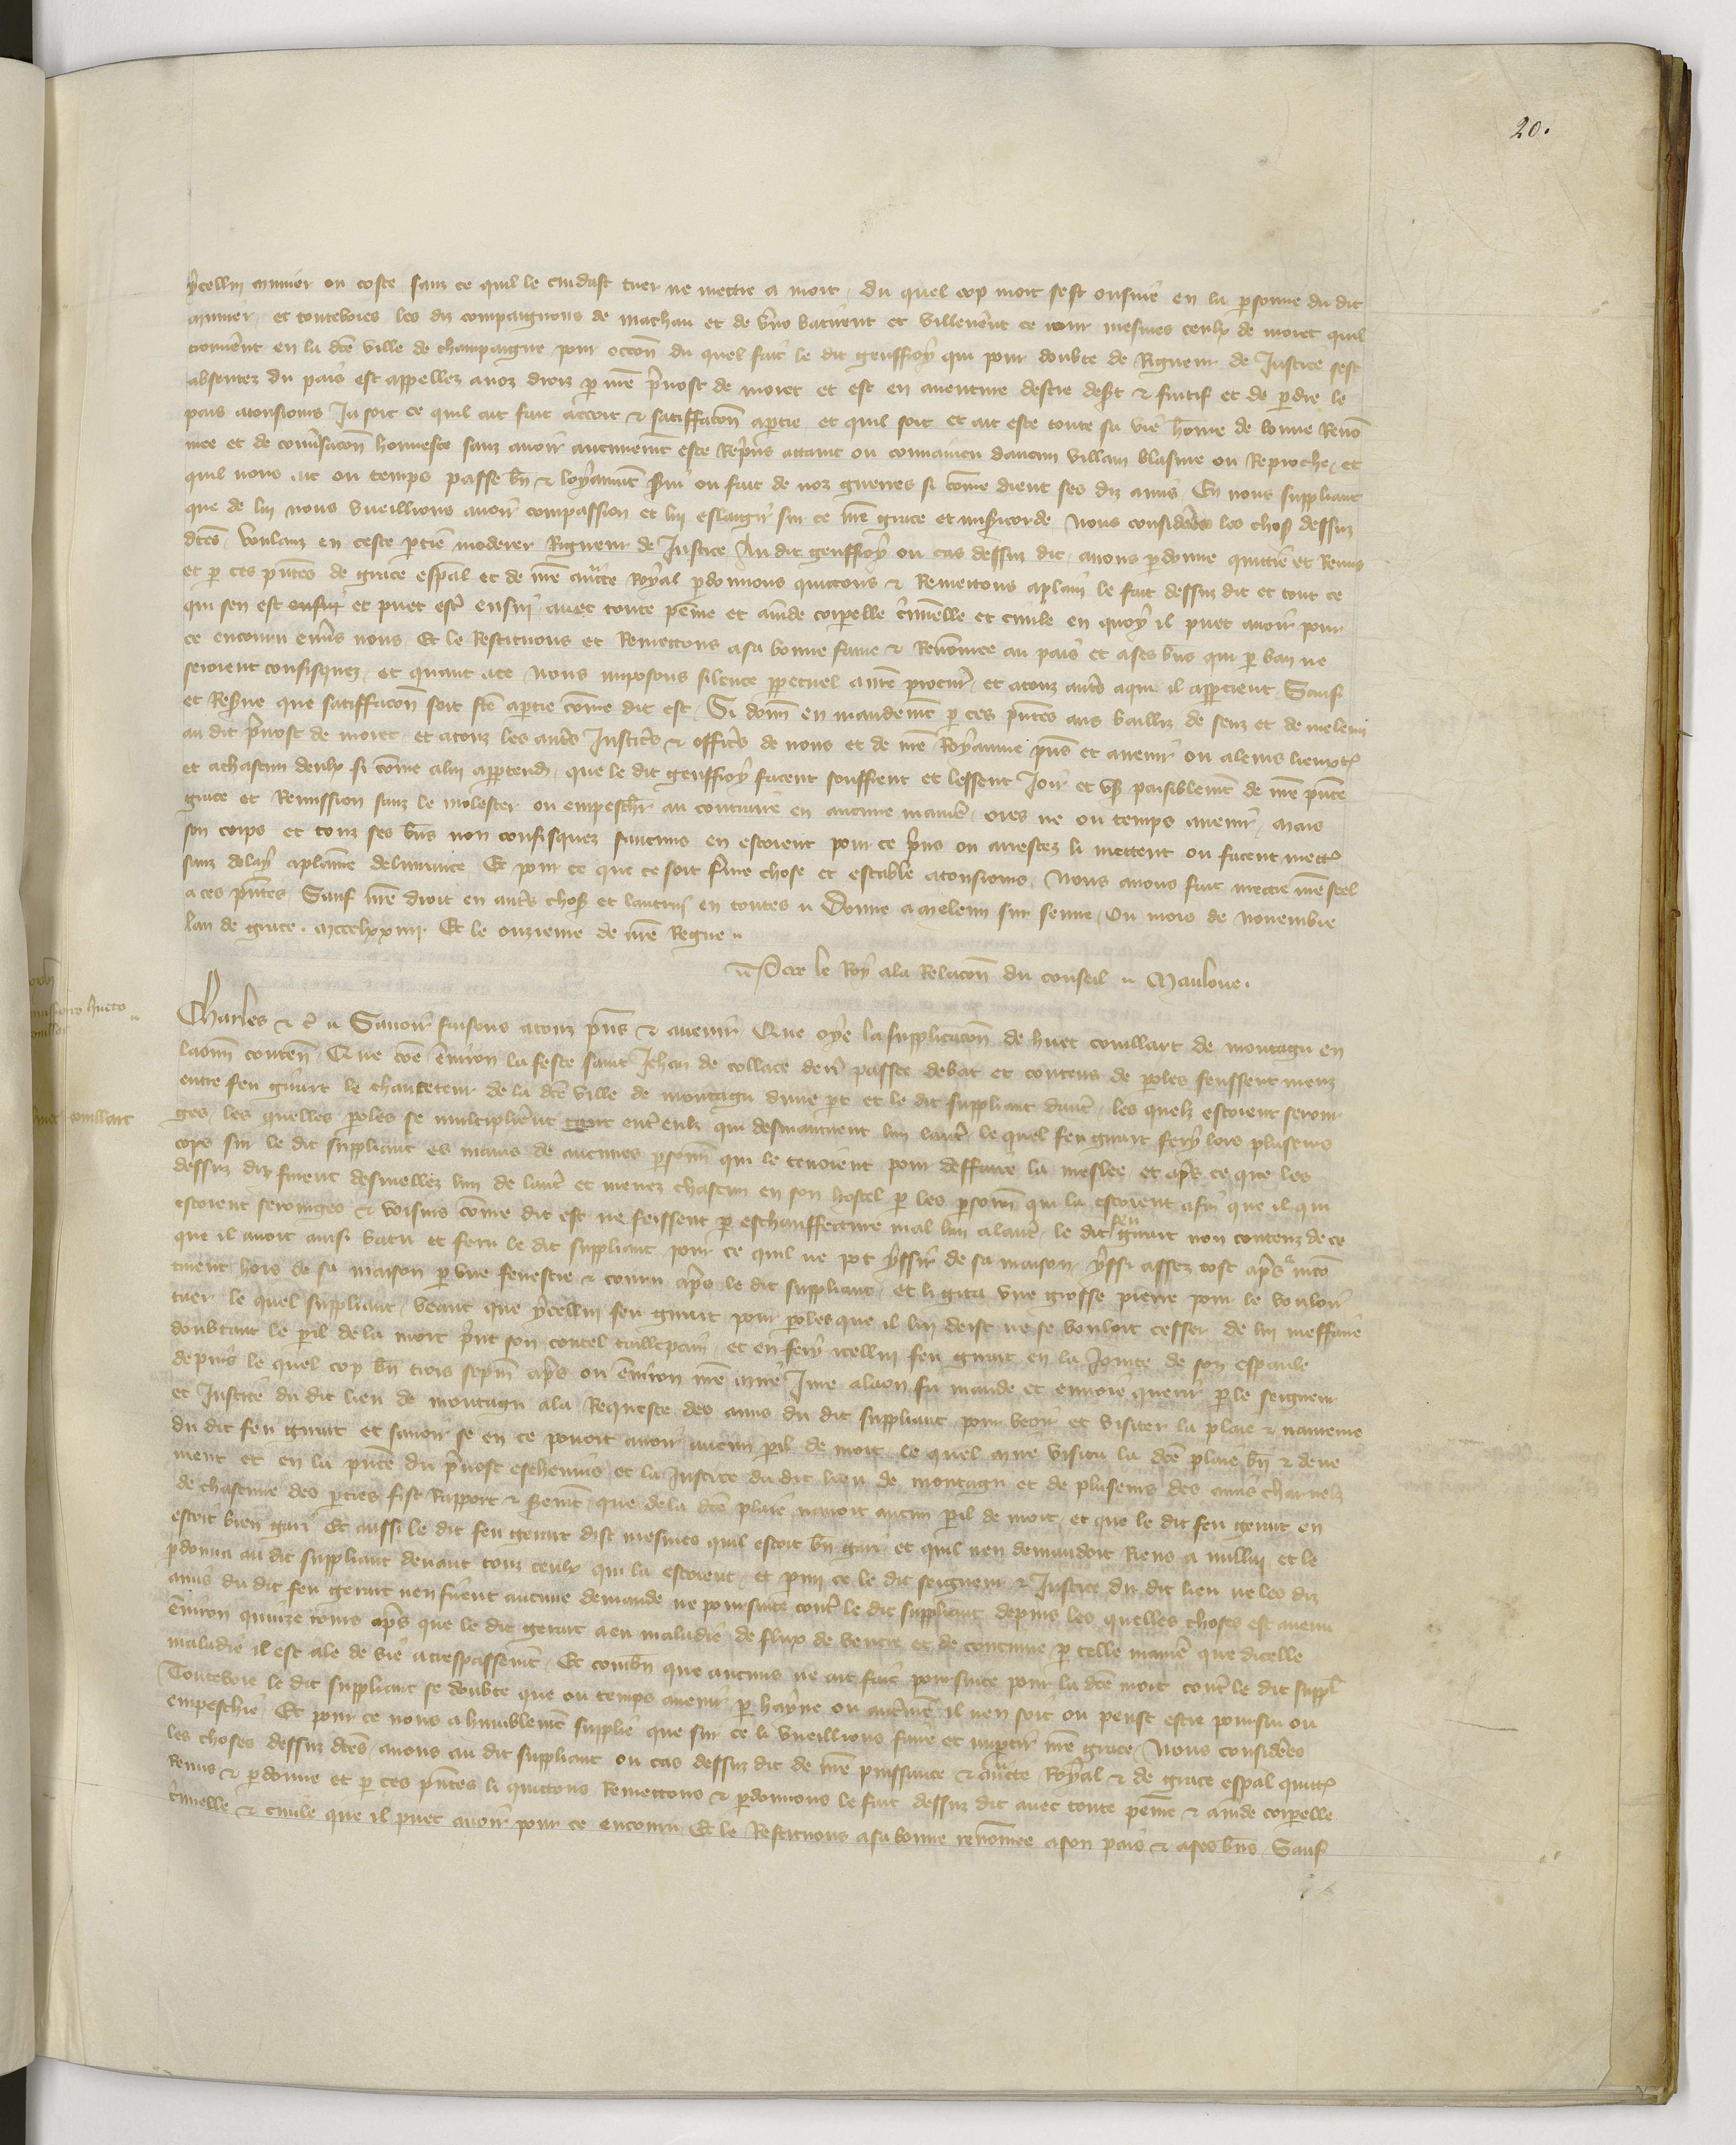 20.
ycellui munier ou coste sanz ce quil le cuidast tuer ne mettre a mort, du quel cop mort sest ensuie en la psonne du dit
munier, et toutevoies les diz compaignons de machau et de batirent et villenerent ce iour mesmes ceulx de moret quil
trouverent en la dce ville de champaigne pour occon du quel fait le dit geuffroy qui pour doubte de Rigueur de Justice sest
absentez du pais est appellez a noz droiz p nre pvost de moret et est en aventure destre desert & fuitif et de pdre le
pais a tousiours Ja soit ce quil ait fait acort & satiffacon a ptie et quil soit et ait este toute sa vie home de bonne Renom
mee et de convsacon honneste sanz avoir autrement este Repris attaint ou convaincu daucun villain blasme ou Reproche, et
quil nous ait ou temps passe bn & loyaument servi ou fait de noz guerres si come dient ses diz amis En nous suppliant
que de lui nous vueillions avoir compassion et lui eslargir sur ce nre grace et misicorde Nous considerees les choses dessuz
dces, voulanz en ceste ptie moderer Rigueur de Justice Au dit geuffroy ou cas dessuz dit, avons pdonne quittie et Remis
et p ces pntes de grace espal et de nre aucte Royal pdonnons quittons & Remettons a plain le fait dessuz dit et tout ce
qui sen est ensui et puet estre ensui avec toute peine et amde corpelle cminelle et civile en quoy il puet avoir pour
ce encouru envs nous Et le Restituons et Remettons a sa bonne fame & Renommee au pais et a ses bns qui p ban ne
seroient confisquez, et quant a ce Nous imposons silence ppetuel a nre procur et a touz auts a qui il apptient Sauf
et Resve que satiffacon soit fce a ptie come dit est, Si donn en mandemt p ces pntes aus bailliz de senz et de meleun
au dit pvost de moret, et a touz les auts Justiciers & officiers de nous et de nre Royaume pns et avenir ou a leurs lieuxtn
et a chascun deulx si come a lui apptendra, que le dit geuffroy facent souffrent et lessent Joir et user paisiblemt de nre pnte
grace et Remission sanz le molester ou empescher au contraire en aucune maniere, ores ne ou temps avenir, mais
son corps et touz ses bns non confisquez saucuns en estoient pour ce pris ou arrestez li mettent ou facent mettre
sanz delay a plaine delivrance Et pour ce que ce soit ferme chose et estable a tousiours, Nous avons fait mettre nre seel
a ces pntes Sauf nre droit en auts choses et lautrui en toutes Donne a meleun sur seine, Ou mois de Novembre
lan de grace. mccclxxiiii. Et le onzieme de nre Regne
Par le Roy a la Relacon du conseil Mauloue.
Charles & c Savoir faisons a touz pns & avenir Que oye la supplicacon de huet couillart de montagu en
laonn conten, Que coe environ la feste saint Jehan de collace derr passee debat et contens de poles feussent meuz
entre feu guiart le charreteur de la dce ville de montagu dune pt et le dit suppliant dautre, les quelz estoient serour
ges, les quelles poles se multiplierent tant entre eulx qui desmentirent lun lautre, le quel feu guiart fery lors pluseurs
cops sur le dit suppliant es mains de aucunes psonnes qui le tenoient pour deffaire la meslee et aps ce que les
dessuz diz furent desmellez lun de lautre et menez chascun en son hostel p les psonnes qui la estoient afin que il qui
estoient serourges & voisins come dit est ne feissent p eschauffeture mal lun a lautre, le dit feu guiart non contenz de ce
que il avoit ainsi batu et feru le dit suppliant pour ce quil ne pot yssir de sa maison, yssi assez tost aps
hors de sa maison p une fenestre & couru aps le dit suppliant, et li gita une grosse pierre pour le vouloir
tuer le quel suppliant, veant que ycellui feu guiart pour poles que il lui deist ne se vouloit cesser de lui meffaire
doubtant le pil de la mort prist son coutel taillepain, et en fery icellui feu guiart en la Jointe de son espaule
depuis le quel cop bn trois sepm aps ou environ mre a laon fu mande et envoie querir p le seigneur
et Justice du dit lieu de montagu a la Requeste des amis du dit suppliant pour veoir et visiter la plaie & navreure
du dit feu guiart et savoir se en ce povoit avoir aucun pil de mort, le quel mire visita la dce plaie bn & deue
ment et en la pnce du pvost eschevins et la Justice du dit lieu de montagu et de pluseurs des amis charnelz
de chascune des pties fist Rapport & serment que de la dce plaie navoit aucun pil de mort, et que le dit feu gerart en
estoit bien gari Et aussi le dit feu gerart dist mesmes quil estoit bn gari et quil nen demandoit Riens a nullui et le
pdonna au dit suppliant devant touz ceulx qui la estoient, et pmi ce le dit seigneur & Justice du dit lieu ne les diz
amis du dit feu gerart nen firent aucune demande ne poursuite contre le dit suppliant depuis les quelles choses est avenu
environ quinze iours aps que le dit gerart a eu maladie de flux de ventre et de continue p telle maniere que dicelle
maladie il est ale de vie a trespassemt, Et combn que aucuns ne ait fait poursuite pour la dce mort contre le dit suppl
Toutevoie le dit suppliant se doubte que ou temps avenir p hayne ou autremt il nen soit ou peust estre poursui ou
empeschie, Et pour ce nous a humblemt supplie que sur ce li vueillions faire et impartir nre grace, Nous considerees
les choses dessuz dces, avons au dit suppliant ou cas dessuz dit de nre puissance & aucte Royal & de grace espal quitte
Remis & pdonne et p ces pntes li quittons Remettons & pdonnons le fait dessuz dit avec toute peine & amde corpelle
cminelle & civile que il puet avoir pour ce encouru Et le Restituons a sa bonne renommee a son pais & a ses bns, Sauf